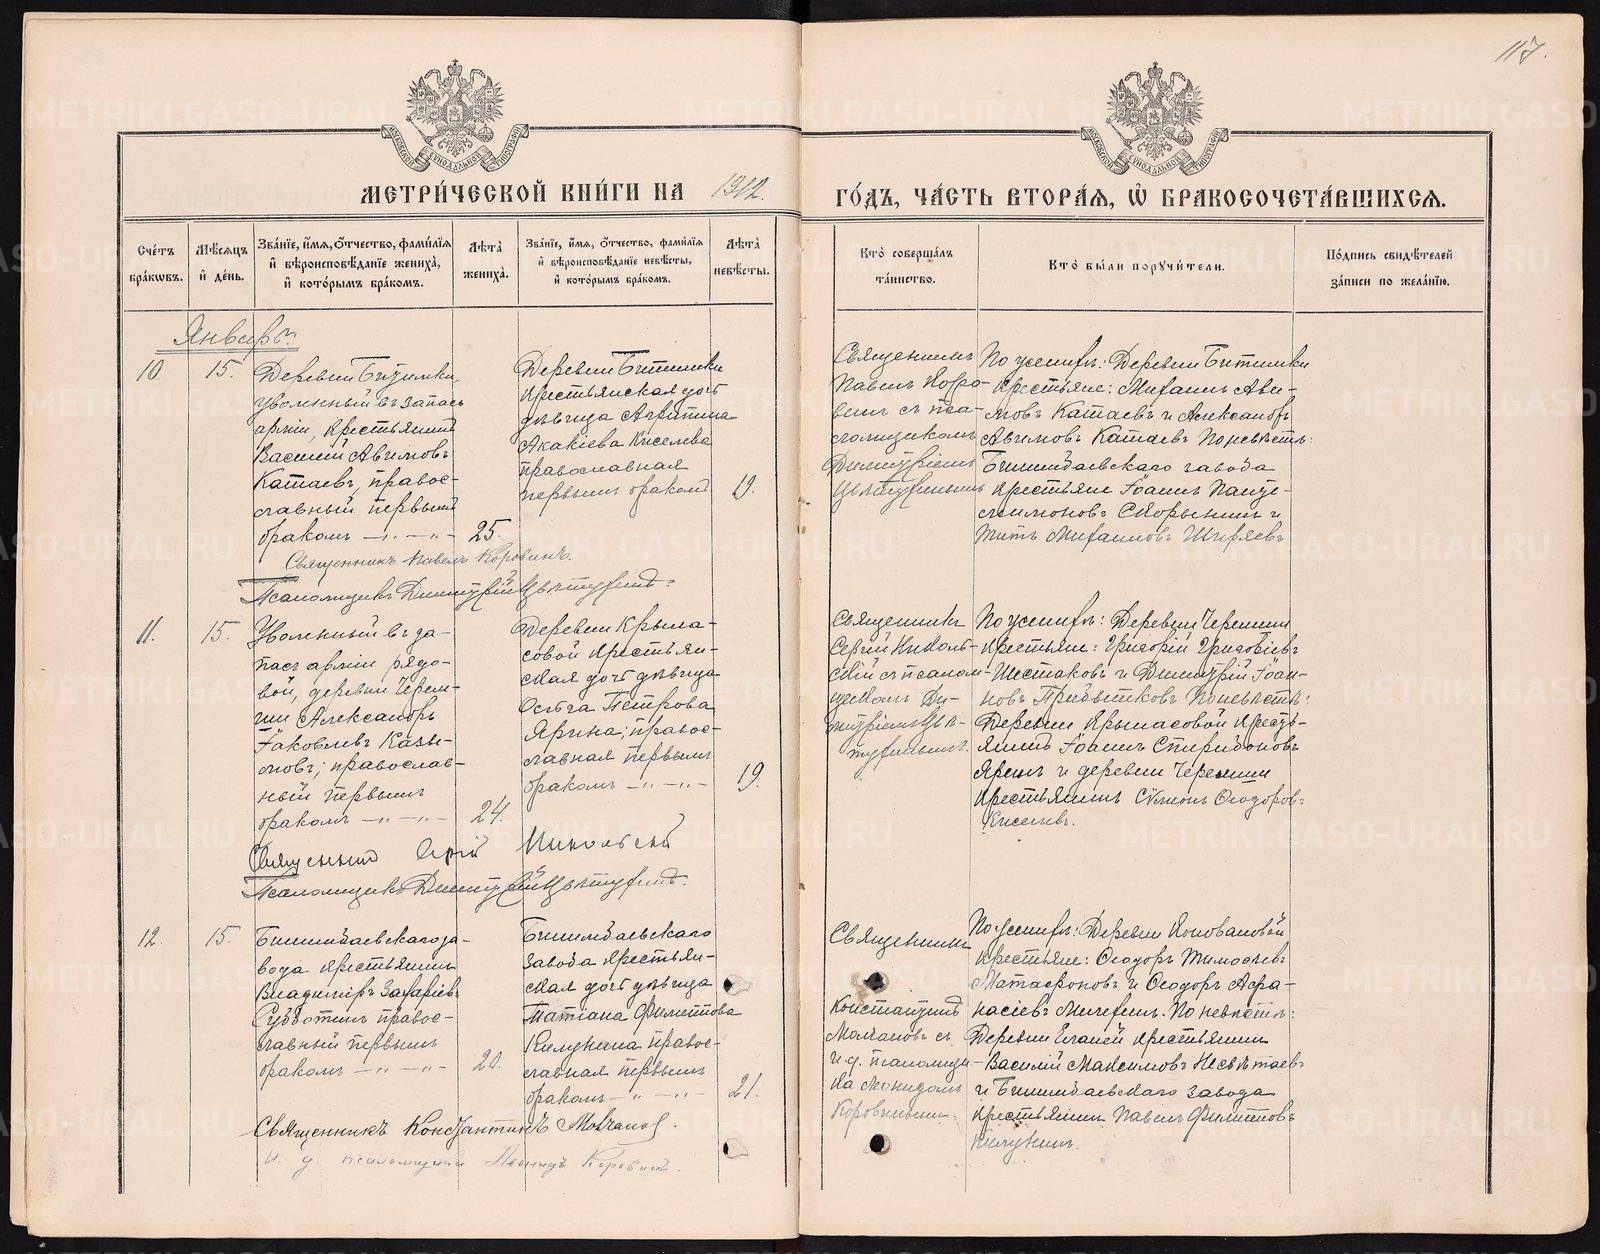 117.
МЕТРИ́ЧЕСКОЙ КНИ́ГИ НА 1912.
ГО́ДЪ, ЧА́СТЬ ВТОРА́Я, Ѡ҆ БРАКОСОЧЕТА́ВШИХСЯ.
Сче́тъ бра́кѡвъ.
Мѣ́сяцъ и҆ де́нь.
Зва́нїе, и҆́мя, ѻ҆́тчество, фами́лїя и҆ вѣроисповѣ́данїе жениха̀, и҆ кото́рымъ бра́комъ.
Лѣ́та жениха̀.
Зва́нїе, и҆́мя, ѻ҆́тчество, фами́лїя и҆ вѣроисповѣ́данїе невѣ́сты, и҆ кото́рымъ бра́комъ.
Лѣ́та невѣ́сты.
Кто̀ соверша́лъ та́инство.
Кто̀ бы́ли порꙋчи́тели.
По́дпись свидѣ́телей за́писи по жела́нїю.
Январь.
10.
15.
Деревни Битимки,
уволенный въ запасъ
арміи, крестьянинъ
Василий Авимовъ
Катаевъ, правос-
славный первымъ
бракомъ — „ — „ —
25.
Деревни Битимки
крестьянская дочь
дѣвица Агрипина
Акакіева Киселева
православная
первымъ бракомъ
19.
Священникъ
Павелъ Коро-
винъ съ пса-
ломщикомъ
Димитріемъ
По женихѣ: Деревни Битимки
крестьяне: Михаилъ Ави-
мовъ Катаевъ и Александръ
Авимовъ Катаевъ По невѣстѣ:
Билимбаевскаго завода
крестьяне Іоаннъ Панте-
леимоновъ Скорынинъ и
Титъ Михаиловъ Ширяевъ
Священникъ Павелъ Коровинъ.
Псаломщикъ Димитрій
11.
15.
Уволенный въ за-
пасъ арміи рядо-
вой, деревни Черем-
ши Александръ
Іаковлевъ Казы-
мовъ; православ-
ный первымъ
бракомъ — „ — „ —
24.
Деревни Крыла-
совой крестьян-
ская дочь дѣвица
Ольга Петрова
Ярина; правос-
лавная первымъ
бракомъ — „ — „ —
19.
Священникъ
Сергій Николь-
скій съ псалом-
щикомъ Ди-
митріемъ
По женихѣ: Деревни Черемши
крестьяне: Григорій Григорьевъ
Шестаковъ и Димитрій Іоан-
новъ Прибытковъ По невѣстѣ:
Деревни Крыласовой кресть-
янинъ Іоаннъ Спиридоновъ
Яринъ и деревни Черемши
крестьянинъ Сѵмеонъ Ѳеодоровъ
Киселевъ.
Священник Сергій Никольскій
Псаломщикъ Димитрій
12.
15.
Билимбаевскаго за-
вода крестьянинъ
Владиміръ Захаріевъ
Субботинъ правос-
лавный первымъ
бракомъ — „ — „ —
20.
Билимбаевскаго
завода крестьян-
ская дочь дѣвица
Татіана Филиппова
Килунина правос-
лавная первымъ
бракомъ — „ — „ —
21.
Священникъ
Константинъ
Молчановъ съ
и. д. псаломщи-
ка Леонидомъ
Коровинымъ.
По женихѣ: Деревни Коноваловой
крестьяне: Ѳеодоръ Тимоѳеевъ
Матафоновъ и Ѳеодоръ Аѳа-
насіевъ Мичуринъ. По невѣстѣ:
Деревни Еланей крестьянинъ
Василій Максимовъ Несвѣтаевъ
и Билимбаевскаго завода
крестьянинъ Павелъ Филипповъ
Килунинъ.
Священникъ Константинъ Молчановъ.
И. д. псаломщика Леонидъ Коровинъ.
METRIKI.GASO-URAL.RU